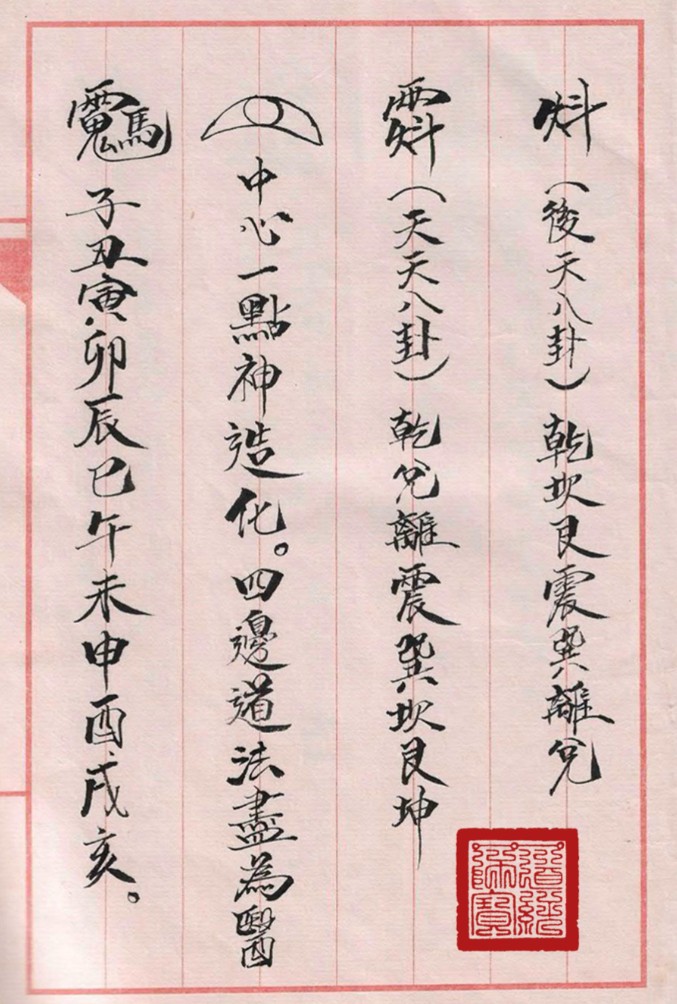 炓（後天八卦）乾坎艮震巽離兌
（天天八卦）乾兌離震巽坎艮坤
中心一點神造化。四邊道法盡為醫
子丑寅卯辰巳午未申酉戌亥。
道經師寶